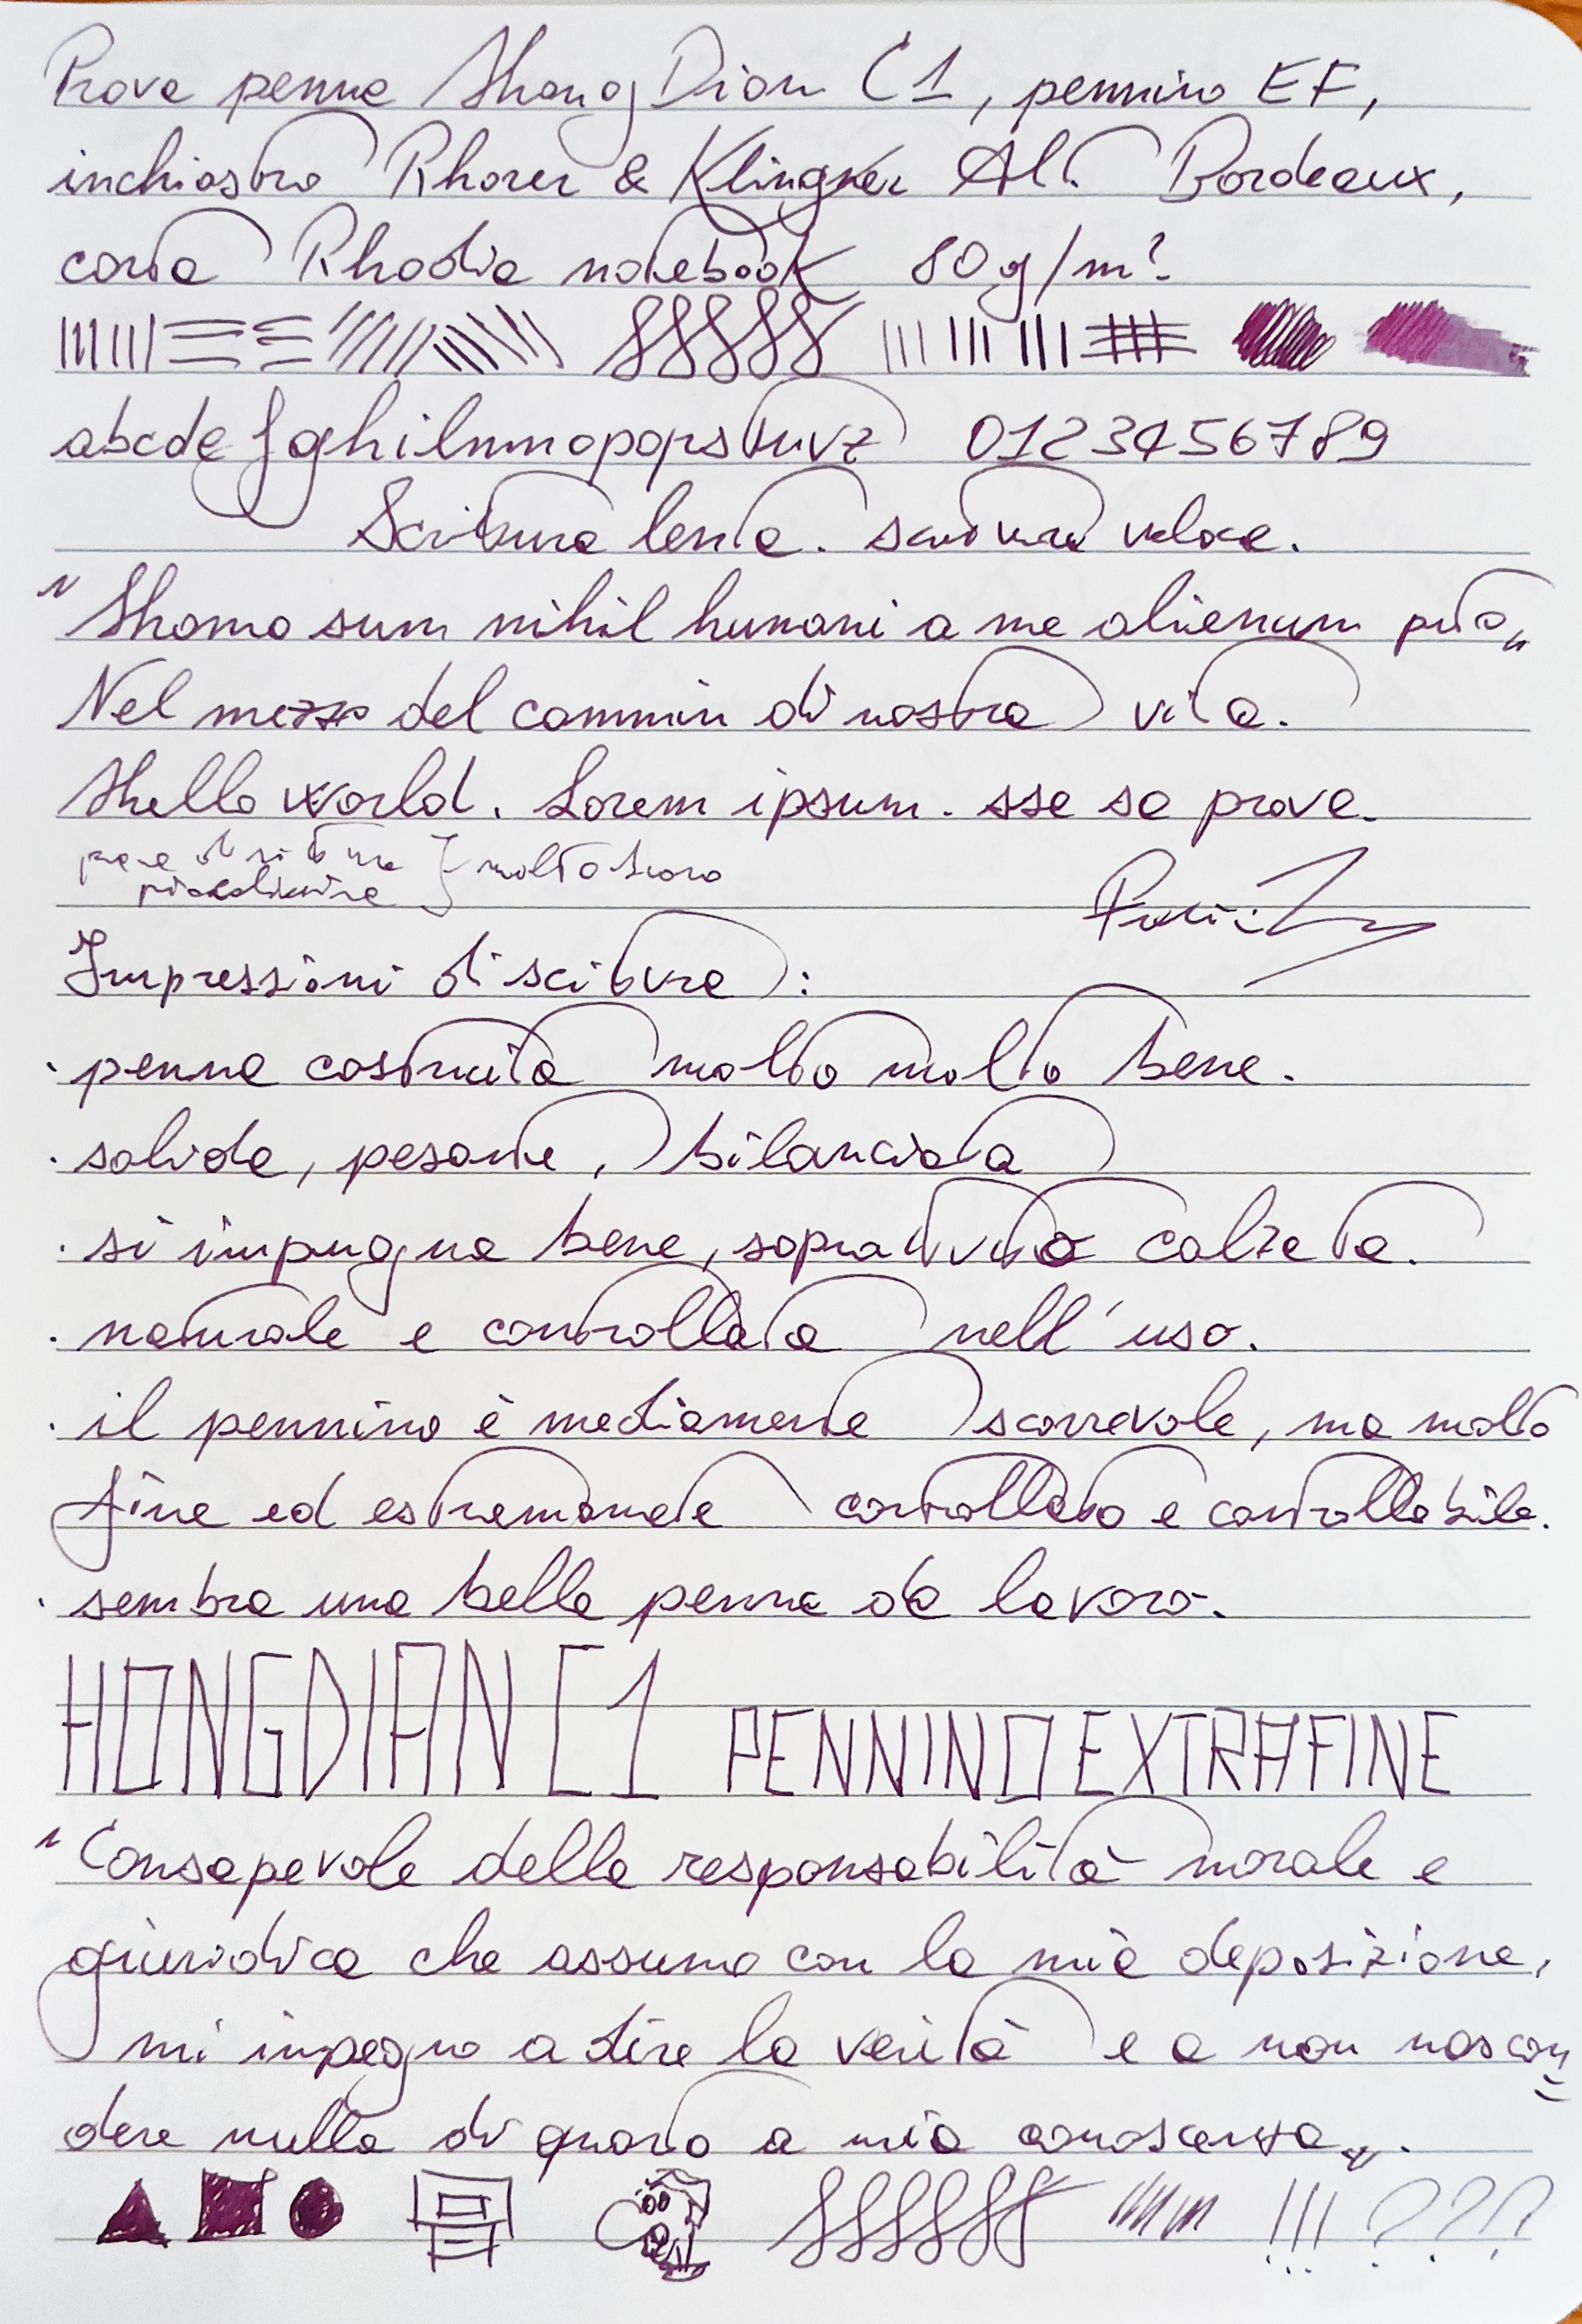 Prova penna HongDian C1, pennino EF,
inchiostro Rhorer & Klingner Alt Bordeaux,
carta Rhodia notebook 80g/m²
abcdefghilmnopqrstuvz 0123456789
Scrittura lenta. scrittura veloce.
"Homo sum nihil humani a me alienum puto"
Nel mezzo del cammin di nostra vita.
Hello world. Lorem ipsum. sse sa prova.
prova di scrittura } molto
piccolissima
Impressioni di scittura:
· penna costruita molto molto bene.
· solida, pesante, bilanciata
· si impugna bene, soprattutto calzata.
· naturale e controllata nell'uso.
· il pennino è mediamente scorrevole, ma molto
fine ed estremamente controllato e controllabile.
· sembra una bella penna da lavoro.
HONGDIAN C1 PENNINO EXTRAFINE
"Consapevole della responsabilità morale e
giuridica che assumo con la mia deposizione,
mi impegno a dire la verità e a non nascon=
dere nulla di quanto a mia conoscenza".
!!! ???